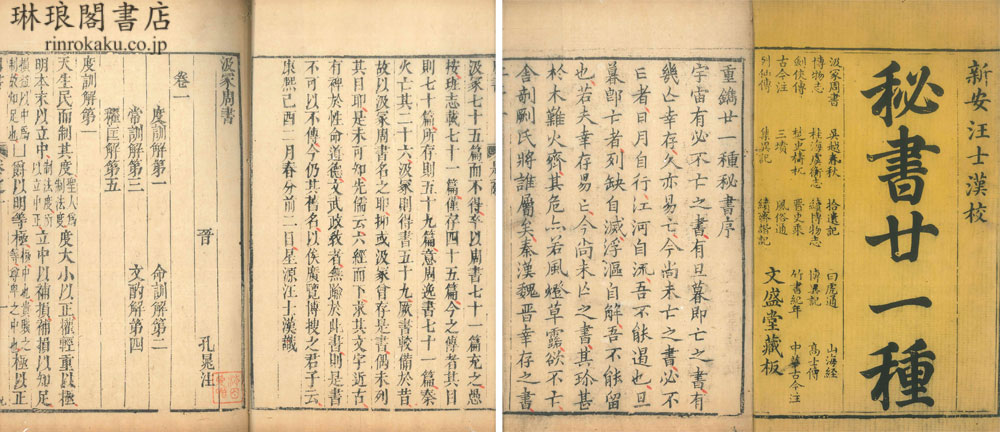 琳琅閣書店
rinrokaku.co.jp
新安汪士漢校
秘書廿一種
汲冢周書 吳越春秋 拾遺記 白虎通 山海經
博物志 桂海虞衡志 續博物志 博異記 高士傳
劍俠傳 楚史檮杌 晉史乘 竹書紀年 中華古今注
古今注 三墳 風俗通
列仙傳 集異記 續齊諧記
文盛堂藏板
重鐫廿一種秘書序
宇宙有必不亡之書有旦暮即亡之書有
幾亡幸存久亦易亡今尚未亡之書必不
亡者日月自行江河自流吾不能遏也旦
暮即亡者列缺自滅浮漚自解吾不能留
也若夫幸存易亡今尚未亡之書其珍甚
於木難火齊其危亟若風燈草露欲不亡
舍剞劂氏將誰屬矣秦漢魏晉幸存之書
汲冢七十五篇而不得卒以周書七十一篇充之愚
按班志載七十一篇僅存四十五篇今之傳者其目
則七十篇所存則五十九篇意周逸書七十一篇秦
火亡其二十六汲冢則得書五十九厥書較備於昔
故以汲冢周書名之耶抑或汲冢曾存是書偶未列
其目耶是未可知先儒云六經而下求其文字近古
有裨於性命道德文武政教者無踰於此書則是書
不可以不傳今仍其舊名以俟廣覽博搜之君子云
康熙己酉二月春分前二日星源汪士漢識
汲冢周書
卷一 晉 孔晁注
度訓解第一 命訓解第二
常訓解第三 文酌解第四
糴匡解第五
度訓解第一
天生民而制其度聖人爲制法度度大小以正權輕重以極
明本末以立中制法度所以立中正立中以補損補損以知足
爵以明等極極以正